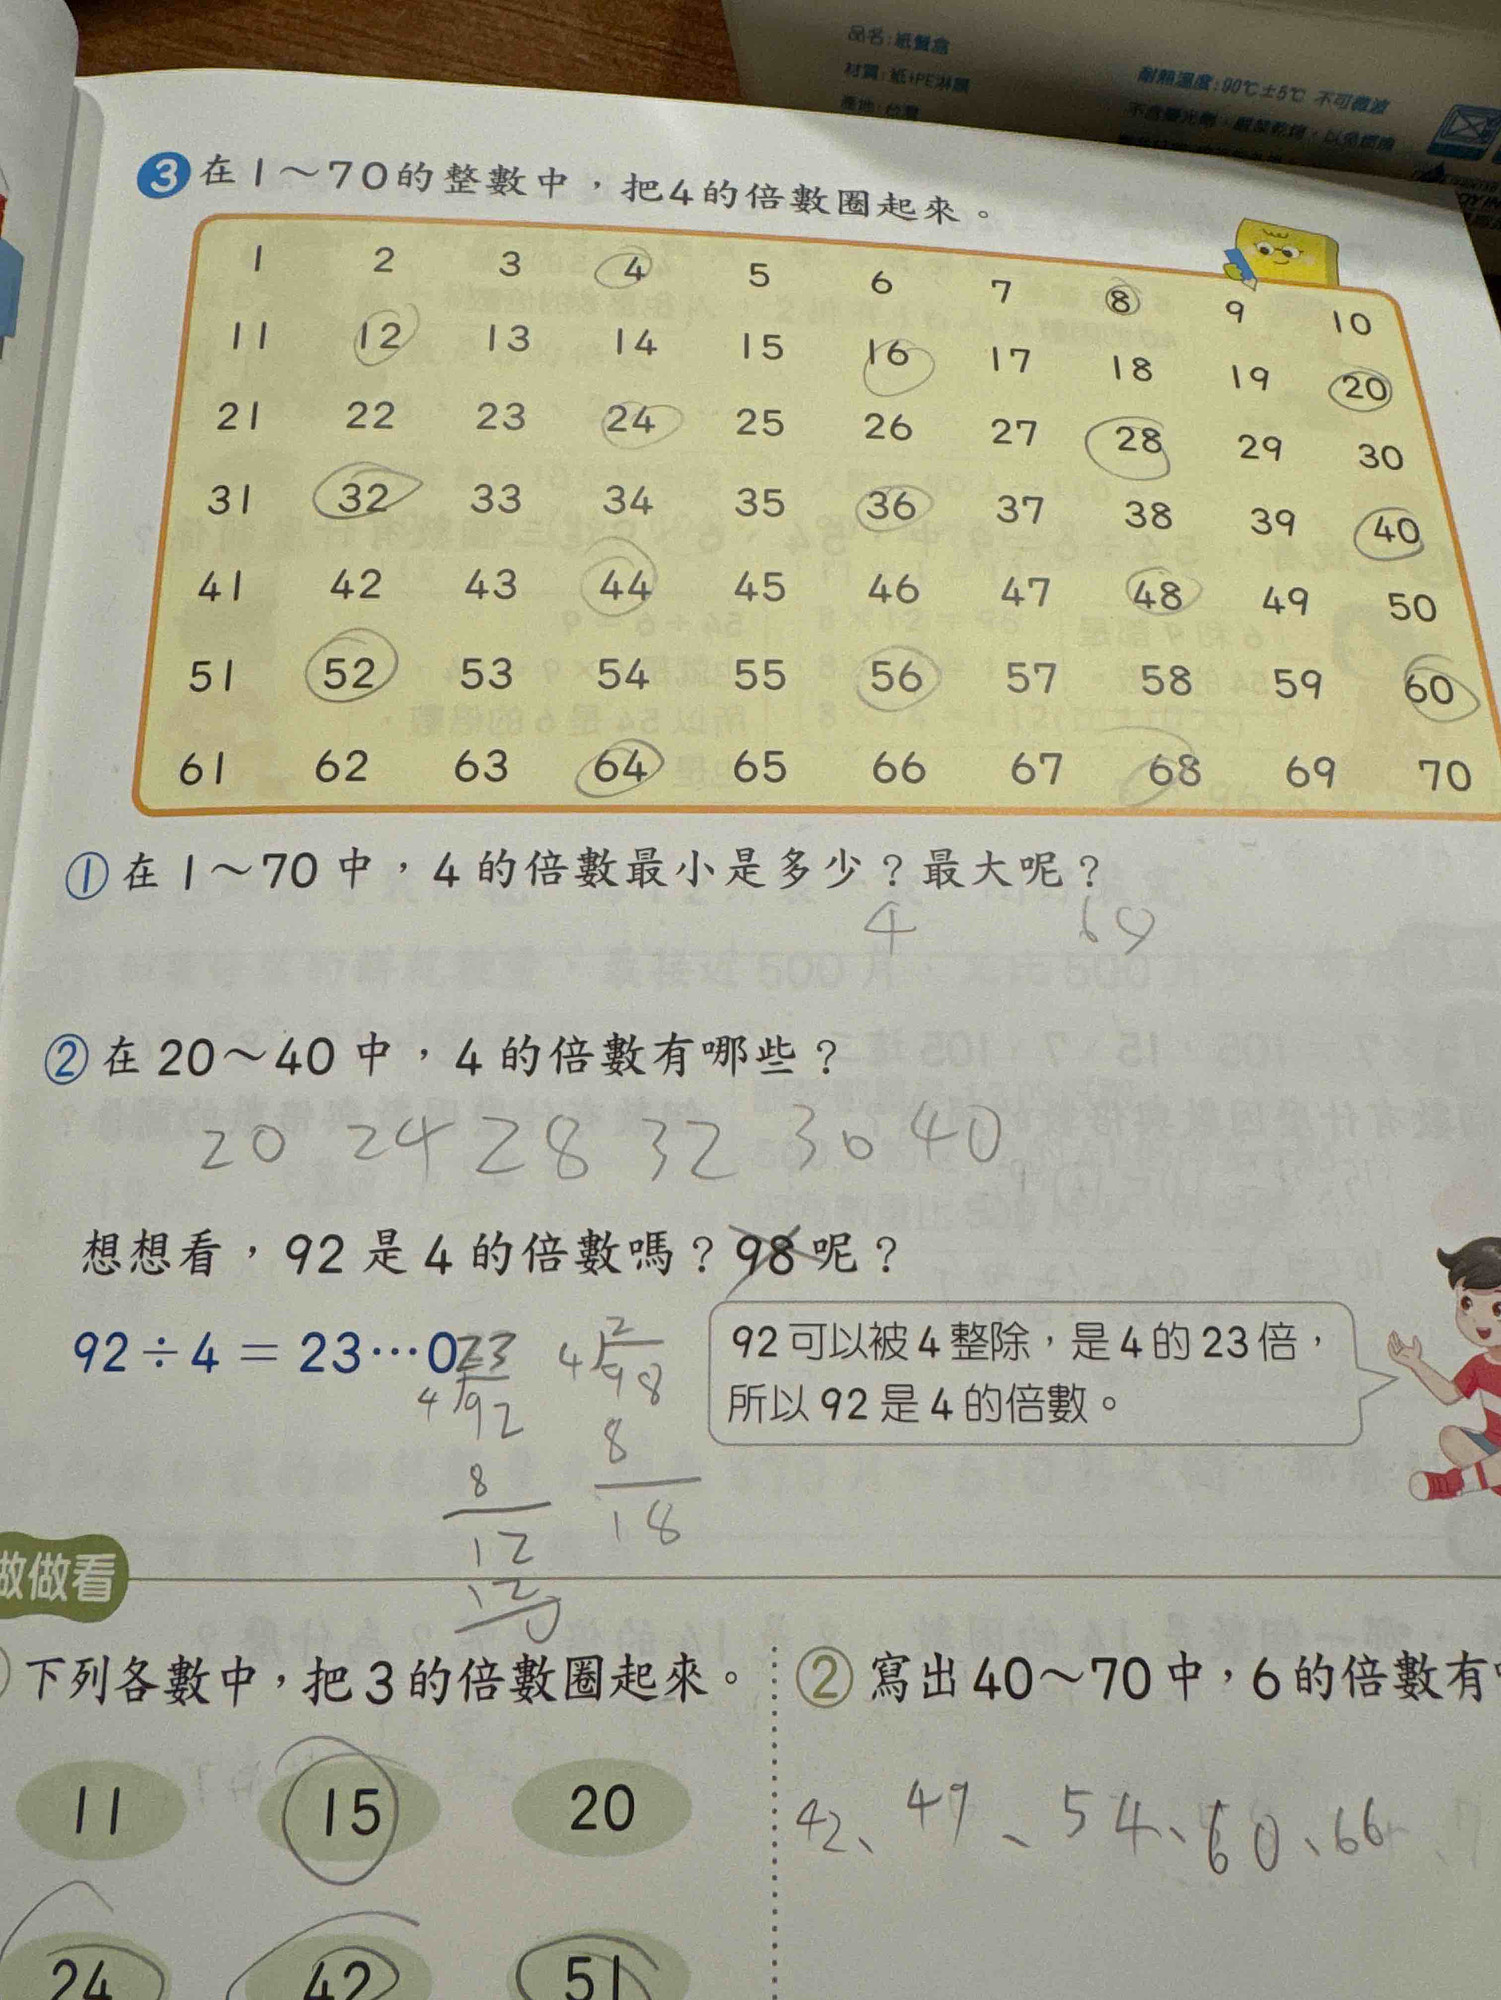 品名：紙餐盒
材質：紙+PE淋膜
產地：台灣
耐熱溫度：90℃±5℃ 不可微波
3 在1～70的整數中，把4的倍數圈起來。
1 2 3 4 5 6 7 8 9 10
11 12 13 14 15 16 17 18 19 20
21 22 23 24 25 26 27 28 29 30
31 32 33 34 35 36 37 38 39 40
41 42 43 44 45 46 47 48 49 50
51 52 53 54 55 56 57 58 59 60
61 62 63 64 65 66 67 68 69 70
① 在1～70中，4的倍數最小是多少？最大呢？
4 69
② 在20～40中，4的倍數有哪些？
20 24 28 32 36 40
想想看，92是4的倍數嗎？98呢？
92÷4＝23…0
23
4 92
8
12
12
0
2
4 98
8
18
92可以被4整除，是4的23倍，
所以92是4的倍數。
做做看
下列各數中，把3的倍數圈起來。
11 15 20
24 42 51
② 寫出40～70中，6的倍數有
42、49、54、60、66